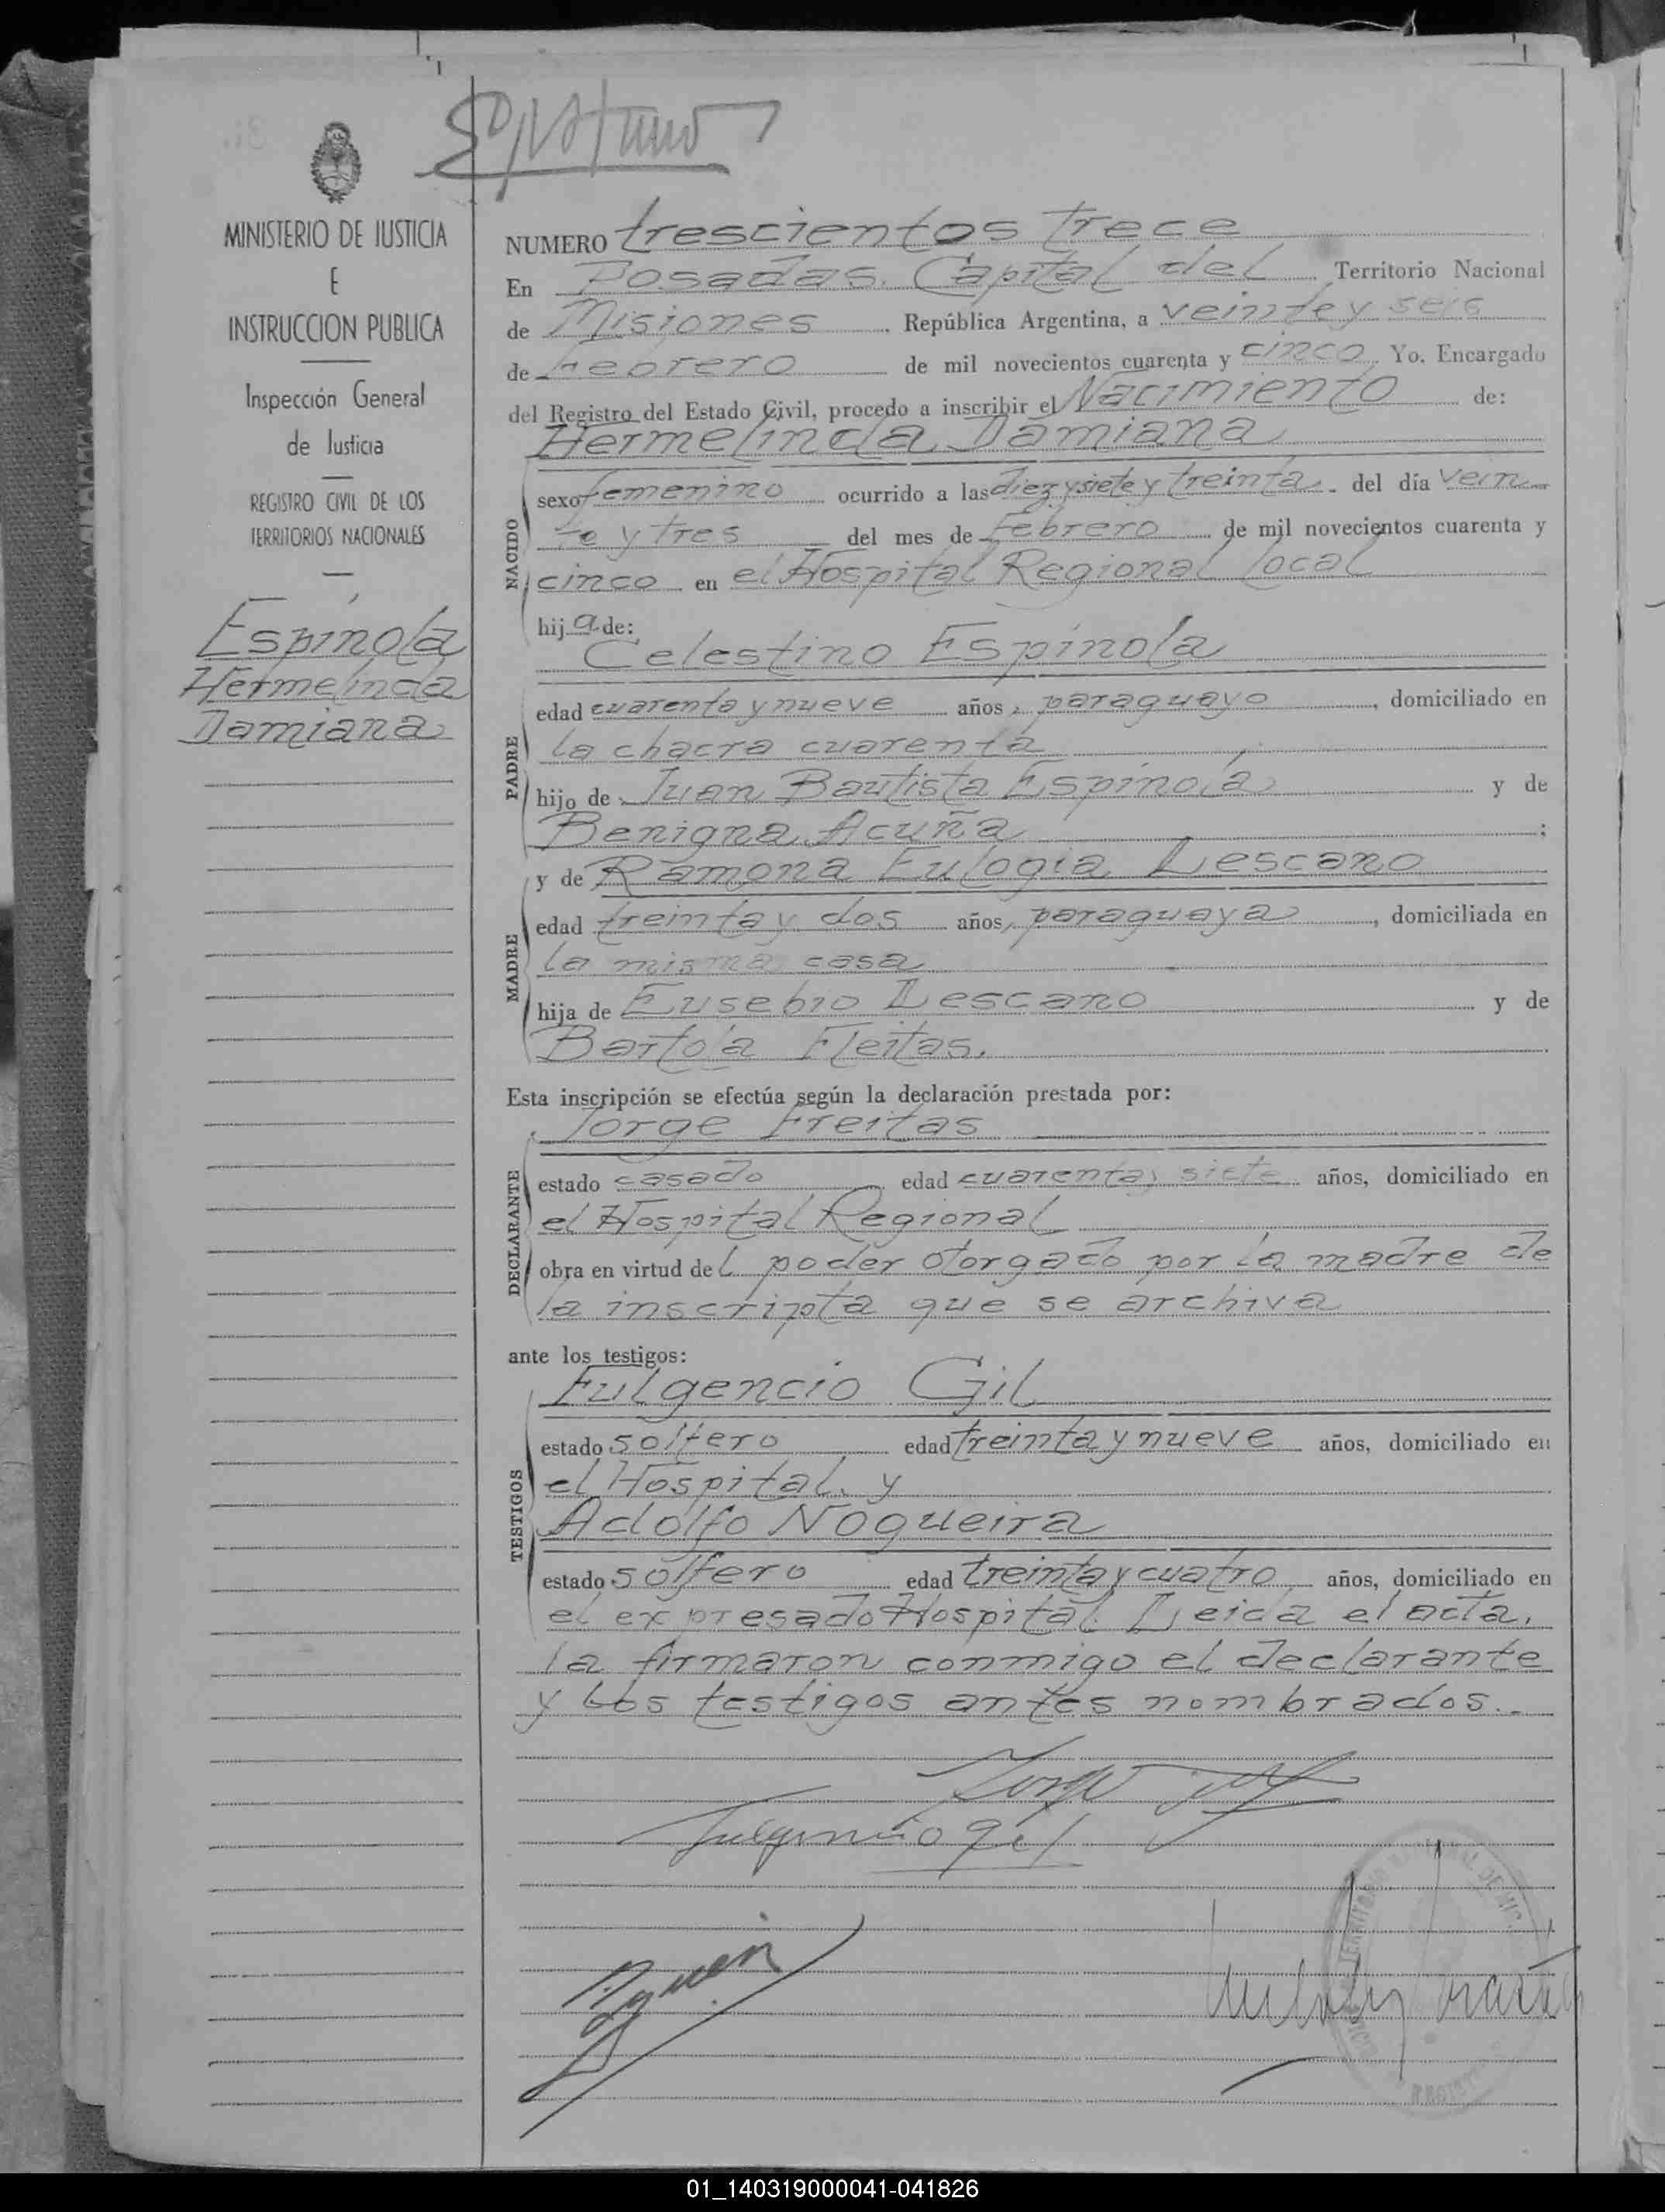 MINISTERIO DE JUSTICIA
E
INSTRUCCION PUBLICA
Inspección General
de Justicia
REGISTRO CIVIL DE LOS
TERRITORIOS NACIONALES
Espínola
Hermelinda
Damiana
NUMERO trescientos trece
En Posadas. Capital del Territorio Nacional
de Misiones República Argentina, a veinte y seis
de Febrero de mil novecientos cuarenta y cinco Yo. Encargado
del Registro del Estado Civil, procedo a inscribir el Nacimiento de:
Hermelinda Damiana
NACIDO
sexo femenino ocurrido a las diez y siete y treinta del día vein
te y tres del mes de Febrero de mil novecientos cuarenta y
cinco en el Hospital Regional local
hija de:
Celestino Espínola
PADRE
edad cuarenta y nueve años, paraguayo, domiciliado en
la chacra cuarenta
hijo de Juan Bautista Espínola y de
Benigna Acuña;
y de Ramona Eulogia Lescano
MADRE
edad treinta y dos años, paraguaya, domiciliada en
la misma casa
hija de Eusebio Lescano y de
Bartola Fleitas.
Esta inscripción se efectúa según la declaración prestada por:
Jorge Freitas
DECLARANTE
estado casado edad cuarenta y siete años, domiciliado en
el Hospital Regional
obra en virtud del poder otorgado por la madre de
la inscripta que se archiva
ante los testigos:
Fulgencio Gil
TESTIGOS
estado soltero edad treinta y nueve años, domiciliado en
el Hospital. y
Adolfo Nogueira
estado soltero edad treinta y cuatro años, domiciliado en
el expresado Hospital. Leida el acta,
la firmaron conmigo el declarante
y los testigos antes nombrados.-
Jorge
Fulgencio Gil
01_140319000041-041826